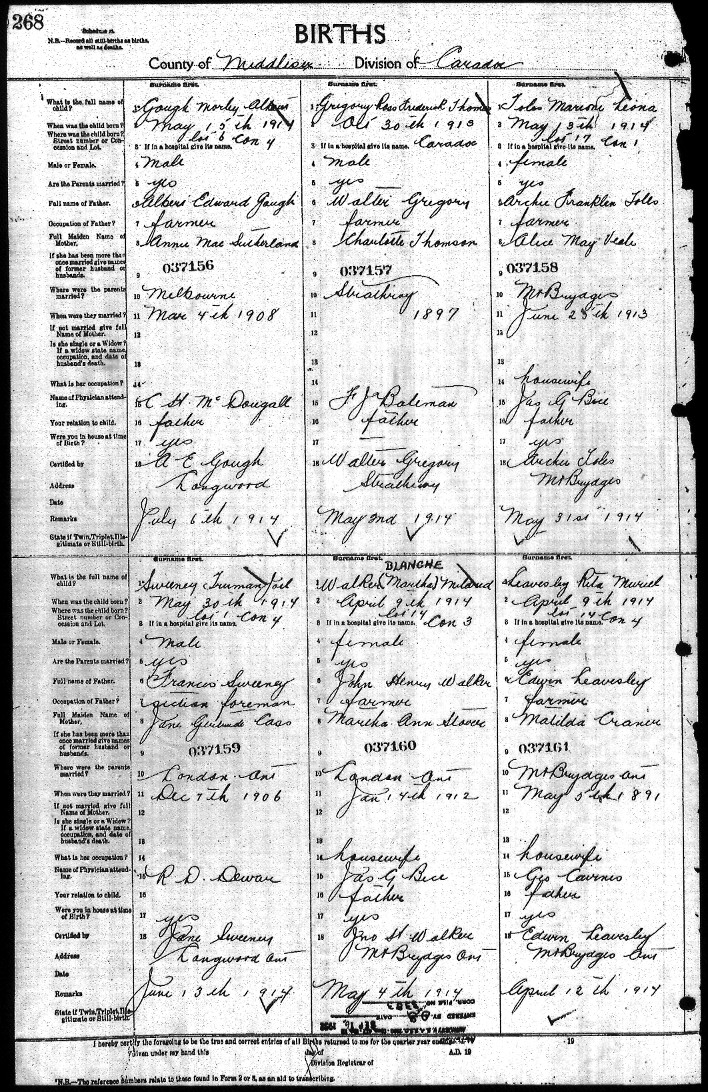 268
Schedule B.
N.B.—Record all still-births as births, as well as deaths.
BIRTHS
County of Middlesex Division of Caradoc
Surname first. Surname first. Surname first.
What is the full name of child?
1 Gough Morley
1 Gregory Ross Frederick Thomas
1 Toles Marion Leona
When was the child born?
2 May 15th 1914
2 Oct 30th 1913
2 May 13th 1914
Where was the child born? Street number or Concession and Lot.
Lot 6 Con 4
Lot 17 Con 1
3 If in a hospital give its name.
3 If in a hospital give its name. Caradoc
3 If in a hospital give its name.
Male or Female.
4 male
4 male
4 female
Are the Parents married?
5 yes
5 yes
5 yes
Full name of Father.
6 Albert Edward Gough
6 Walter Gregory
6 Archie Franklin Toles
Occupation of Father?
7 farmer
7 farmer
7 farmer
Full Maiden Name of Mother.
8 Annie Mae Sutherland
8 Charlotte Thomson
8 Alice May Veale
If she has been more than once married give names of former husband or husbands.
9 037156
9 037157
9 037158
Where were the parents married?
10 Melbourne
10 Strathroy
10 Mt Brydges
When were they married?
11 Mar 4th 1908
11 1897
11 June 25th 1913
If not married give full Name of Mother.
12
12
12
Is she single or a Widow? If a widow state name, occupation, and date of husband's death.
13
13
13
What is her occupation?
14
14
14 housewife
Name of Physician attending.
15 C St McDougall
15 F J Bateman
15 Jas G Bice
Your relation to child.
16 father
16 father
16 father
Were you in house at time of Birth?
17 yes
17 —
17 yes
Certified by
18 A E Gough
18 Walter Gregory
18 Archie Toles
Address
Longwood
Strathroy
Mt Brydges
Date
July 6th 1914
May 2nd 1914
May 31st 1914
Remarks
State if Twin, Triplet, Illegitimate or Still-birth.
Surname first. Surname first. Surname first.
BLANCHE
What is the full name of child?
1 Sweeney Truman Joel
1 Walker (Martha) Mildred
1 Leavesley Rita Muriel
When was the child born?
2 May 30th 1914
2 April 9th 1914
2 April 9th 1914
Where was the child born? Street number or Concession and Lot.
Lot 1 Con 4
Lot 14 Con 3
Lot 14 Con 4
3 If in a hospital give its name.
3 If in a hospital give its name.
3 If in a hospital give its name.
Male or Female.
4 male
4 female
4 female
Are the Parents married?
5 yes
5 yes
5 yes
Full name of Father.
6 Francis Sweeney
6 John Henry Walker
6 Edwin Leavesley
Occupation of Father?
7 section foreman
7 farmer
7 farmer
Full Maiden Name of Mother.
8 Jane Gertrude Cass
8 Martha Ann Stover
8 Matilda Craner
If she has been more than once married give names of former husband or husbands.
9 037159
9 037160
9 037161
Where were the parents married?
10 London Ont
10 London Ont
10 Mt Brydges Ont
When were they married?
11 Dec 7th 1906
11 Jan 14th 1912
11 May 5th 1891
If not married give full Name of Mother.
12
12
12
Is she single or a Widow? If a widow state name, occupation, and date of husband's death.
13
13
13
What is her occupation?
14
14 housewife
14 housewife
Name of Physician attending.
15 R D. Dewar
15 Jas G Bice
15 Geo
Your relation to child.
16
16 father
16 father
Were you in house at time of Birth?
17 yes
17 yes
17 yes
Certified by
18 Jane Sweeney
18 Jno H Walker
18 Edwin Leavesley
Address
Longwood Ont
Mt Brydges Ont
Mt Brydges Ont
Date
June 13th 1914
May 4th 1914
April 12th 1914
Remarks
State if Twin, Triplet, Illegitimate or Still-birth.
I hereby certify the foregoing to be the true and correct entries of all Births returned to me for the quarter year ending 19
Given under my hand this day of A.D. 19
Division Registrar of
*N.B.—The reference numbers relate to those found in Form 2 or 3, as an aid to transcribing.